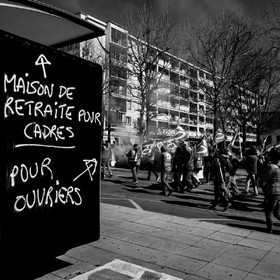 MAISON DE
RETRAITE POUR
CADRES
POUR
OUVRIERS